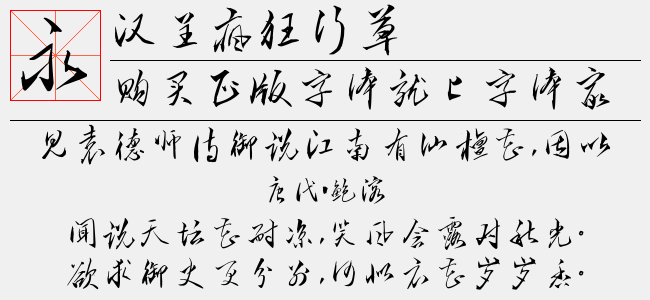 永
汉呈疯狂行草
购买正版字体就上字体家
见袁德师侍御说江南有仙檀花,因以
唐代·鲍溶
闻说天坛花耐凉,笑风含露对秋光。
欲求御史更分别,何似衣花岁岁香。